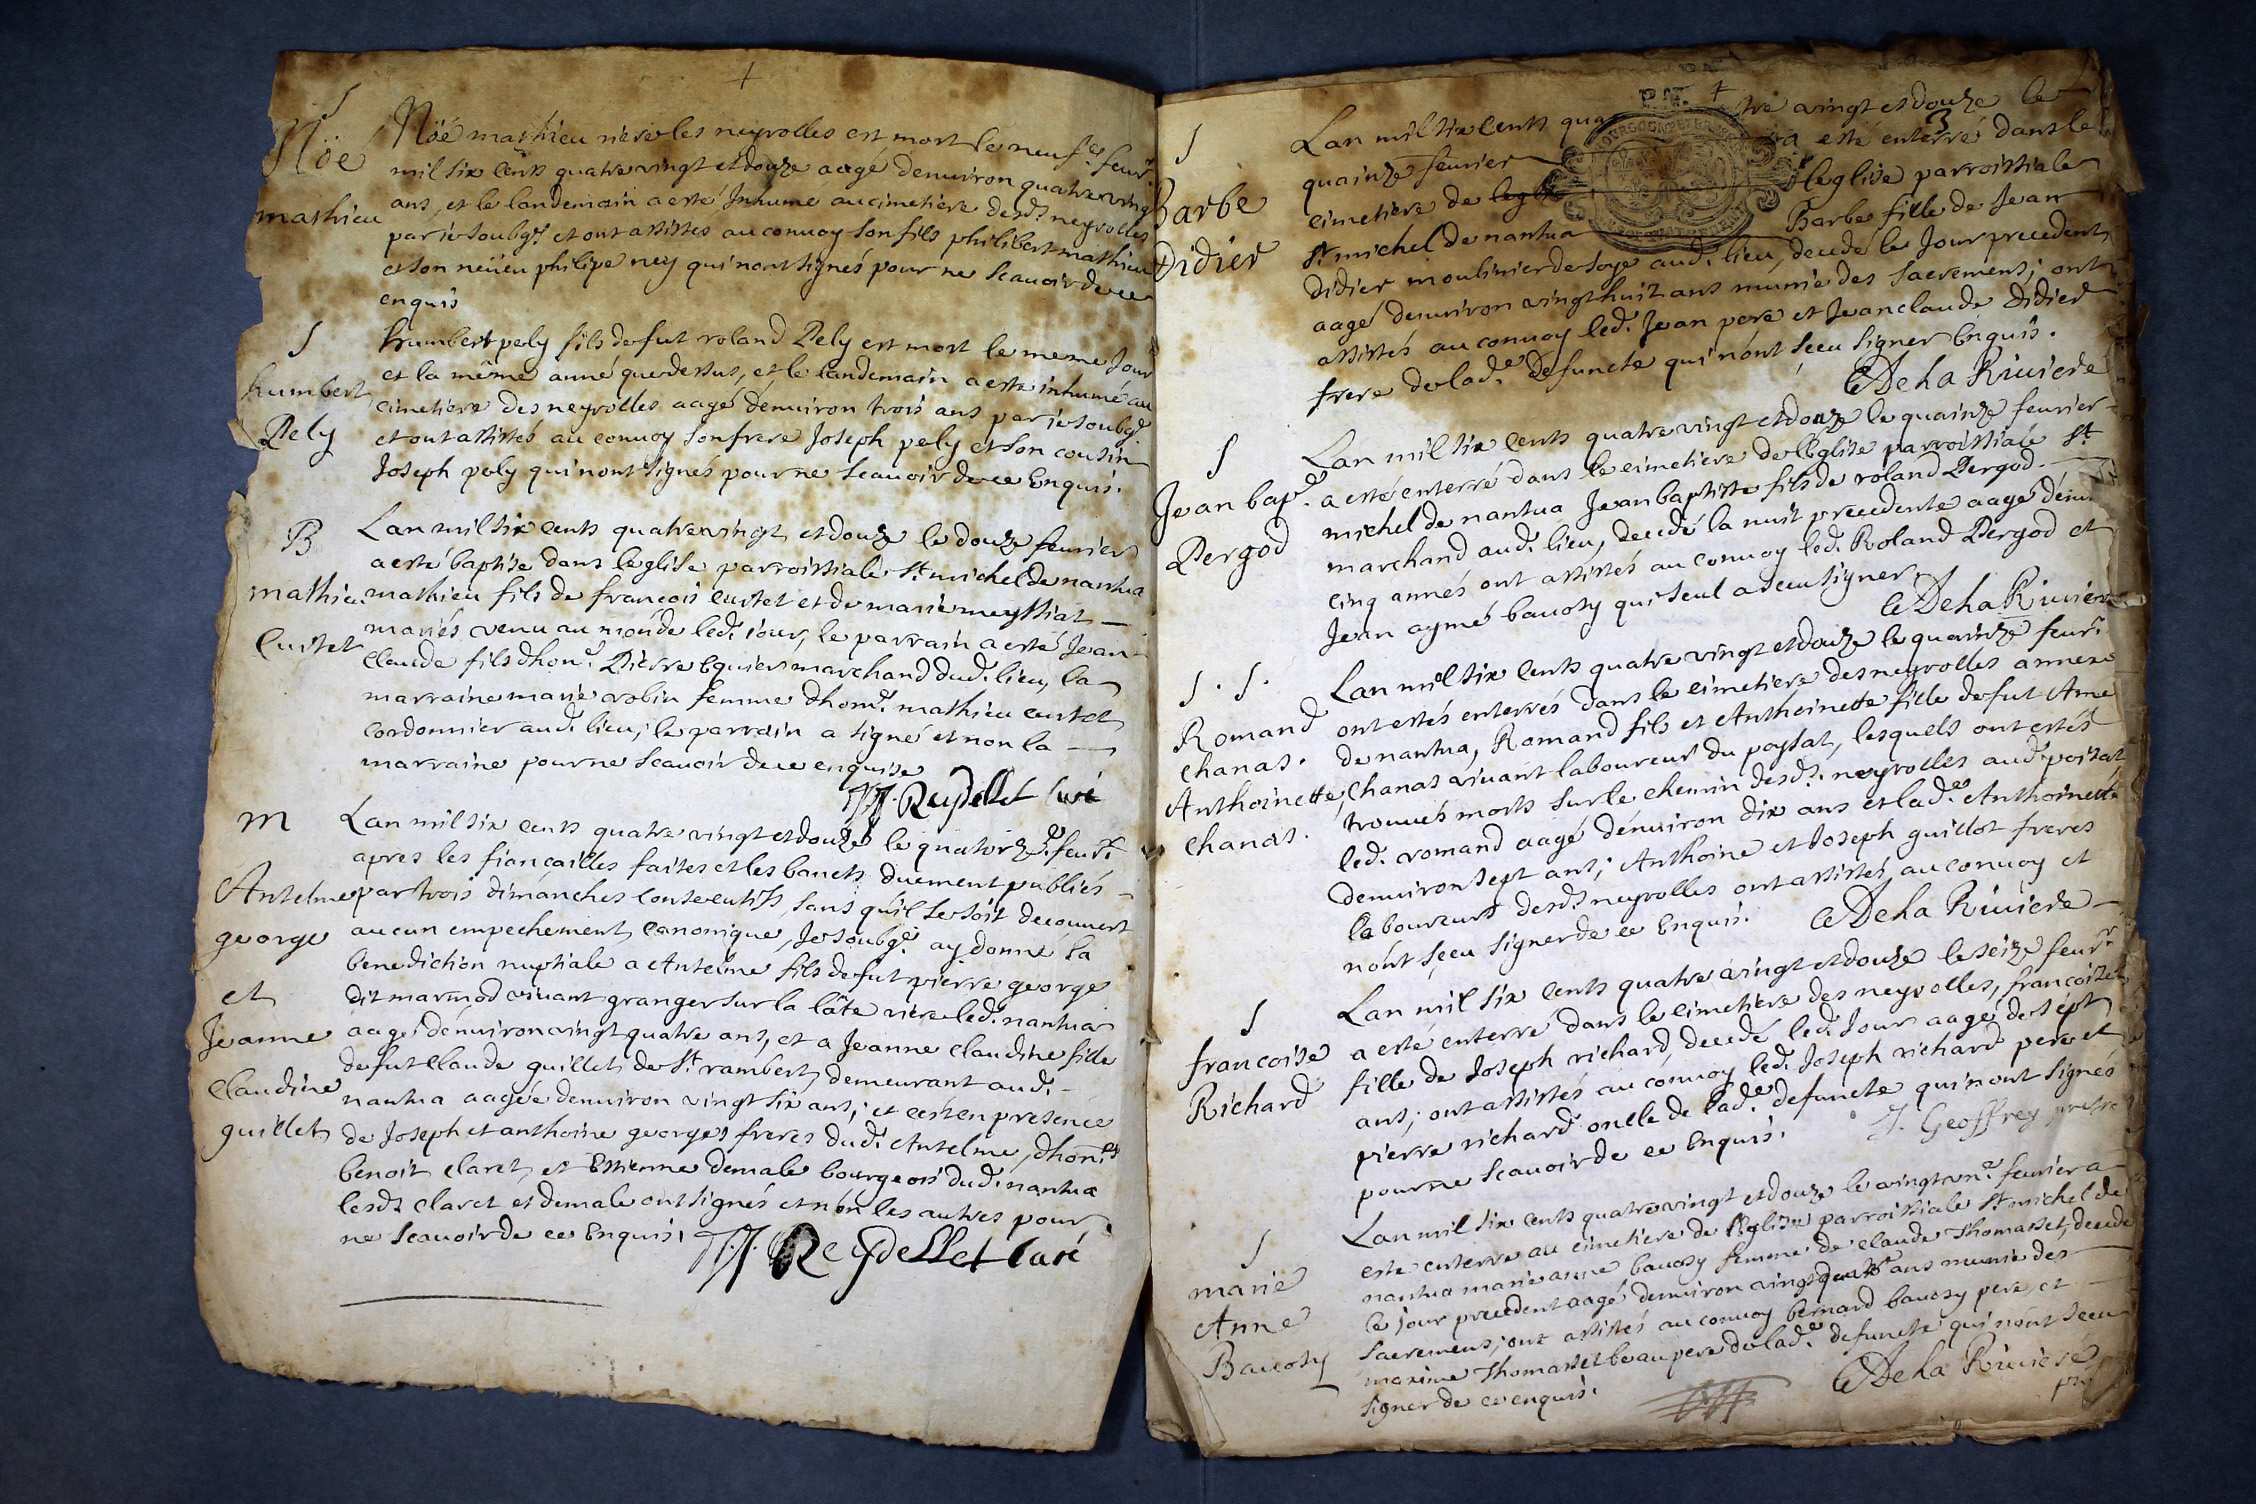 +
S
Nöé
mathieu
Nöé mathieu riere les neyrolles est mort le neuf.e feur.
mil six cents quatre vingt et douze aagé denuiron quatre vingt
ans, et le landemain a esté Inhumé au cimetiere desd. neyrolles
par ie soubg.é et ont assistes au conuoy son fils philibert mathieu
et son neüeu philipe ney qui nont signés pour ne scauoir de ce
enquis
S
humbert
Pely
humbert pely fils de fut roland Pely est mort le meme Jour
et la même anné que dessus, et le landemain a esté inhumé au
cimetiere des neyrolles aagé dénuiron trois ans par ie soubg.é
et ont assistés au conuoy son frere Joseph pely et son cousin
Joseph pely qui nont signés pour ne scauoir de ce Enquis.
B
mathieu
Curtet
Lan mil six cents quatre vingt et douze le douze feurier
a esté baptise dans leglise parroissiale St michel de nantua
mathieu fils de francois curtet et de marie meyssiat
mariés venu au mónde led. iour, le parrain a esté Jean
claude fils dhon.e Pierre Eguier marchand dud. lieu, la
marraine marie robin femme dhon.e mathieu curtet
cordonnier aud. lieu, le parrain a signé et non la
marraine pour ne scauoir de ce enquise
JJ. Reydellet Curé
m
Antelme
george
et
Jeanne
claudine
guillet
Lan mil six cents quatre vingt et douze le quatorze.e feur.r
apres les fiancailles faites et les bancts duement publiés
par trois dimánches consecutifs, sans qu'il se soit decouuert
aucun empechement canonique, Je soubg.é ay donné la
benediction nuptiale a Antelme fils de fut pierre george
dit marmod viuant granger sur la lâte riere led. nantua
aagé dénuiron vingt quatre ans, et a Jeanne claudine fille
de fut claude guillet de St. rambert demeurant aud.
nantua aagée denuiron vingt six ans; et cést en presénce
de Joseph et anthoine georges freres dud. Antelme, dhon.es
benoit claret, et Estienne demale bourgeois dud. nantua
lesd. claret et demale ont signés et nón les autres pour
ne scauoir de ce Enquis; JJ. Reydellet Curé
+
3
S
Barbe
Didier
Lan mil six cents quatre vingt et douze le
quainze feurier a esté enterré dans le
cimetiere de leglise parroissiale
St. michel de nantua Barbe fille de Jean
didier moulinier de soye aud. lieu, decedé le Jour precedent
aagé denuiron vingt huit ans munie des sacrements; ont
assistés au conuoy led. Jean pere et Jean claude Didier
frere de lad.e defuncte qui nónt sçeu signer Enquis.
C De La Riuiere
S
Jean bap.te
Pergod
Lan mil six cents quatre vingt et douze le quainze feurier
a esté enterré dans le cimetiere de lEglise parroissiale St.
michel de nantua Jean baptiste fils de roland Pergod
marchand aud. lieu, decedé la nuit precedente aagé dénui
cinq annés ont assistés au conuoy led. Roland Pergod et
Jean aymé bauosy qui seul a sceu signer,
C De La Riuiere
S. S.
Romand
chanas.
Anthoinette
chanas.
Lan mil six cents quatre vingt et douze le quainze feur.
ont estés enterrés dans le cimetiere des neyrolles annexe
de nantua, Romand fils et Anthoinette fille de fut Ame
Chanas viuant laboureur du poysat, lesquels ont estés
trouués morts sur le chemin desd. neyrolles aud. poisat
led. romand aagé dénuiron dix ans et lad.e Anthoinette
denuiron sept ans; Anthoine et Joseph guillot freres
laboureurs desd. neyrolles ont assistés au conuoy et
nónt sçeu signer de ce Enquis. C De La Riuiere
S
francoise
Richard
Lan mil six cents quatre vingt et douze le seize feur.r
a esté enterré dans le cimetiere des neyrolles, francoise
fille de Joseph richard, decedé led. Jour aagé de sept
ans; ont assistés au cónuoy led. Joseph richard pere et
pierre richard oncle de lad.e defuncte qui nont signés
pour ne scauoir de ce Enquis. J. Geoffrey prestre
S
marie
Anne
Bauosy
Lan mil six cents quatre vingt et douze le vingt vn.e feurier a
esté enterre au cimetiere de lEglise parroissiale St. michel de
nantua marie anne bauosy femme de claude Thomasset, decedé
le jour precedent aagé denuiron vingt quatre ans munie des
sacremens; ont assistés au conuoy bernard bauosy pere, et
maxime Thomasset beaupere de lad.e defuncte qui nónt sceu
signer de ce enquis.
C De La Riuiere